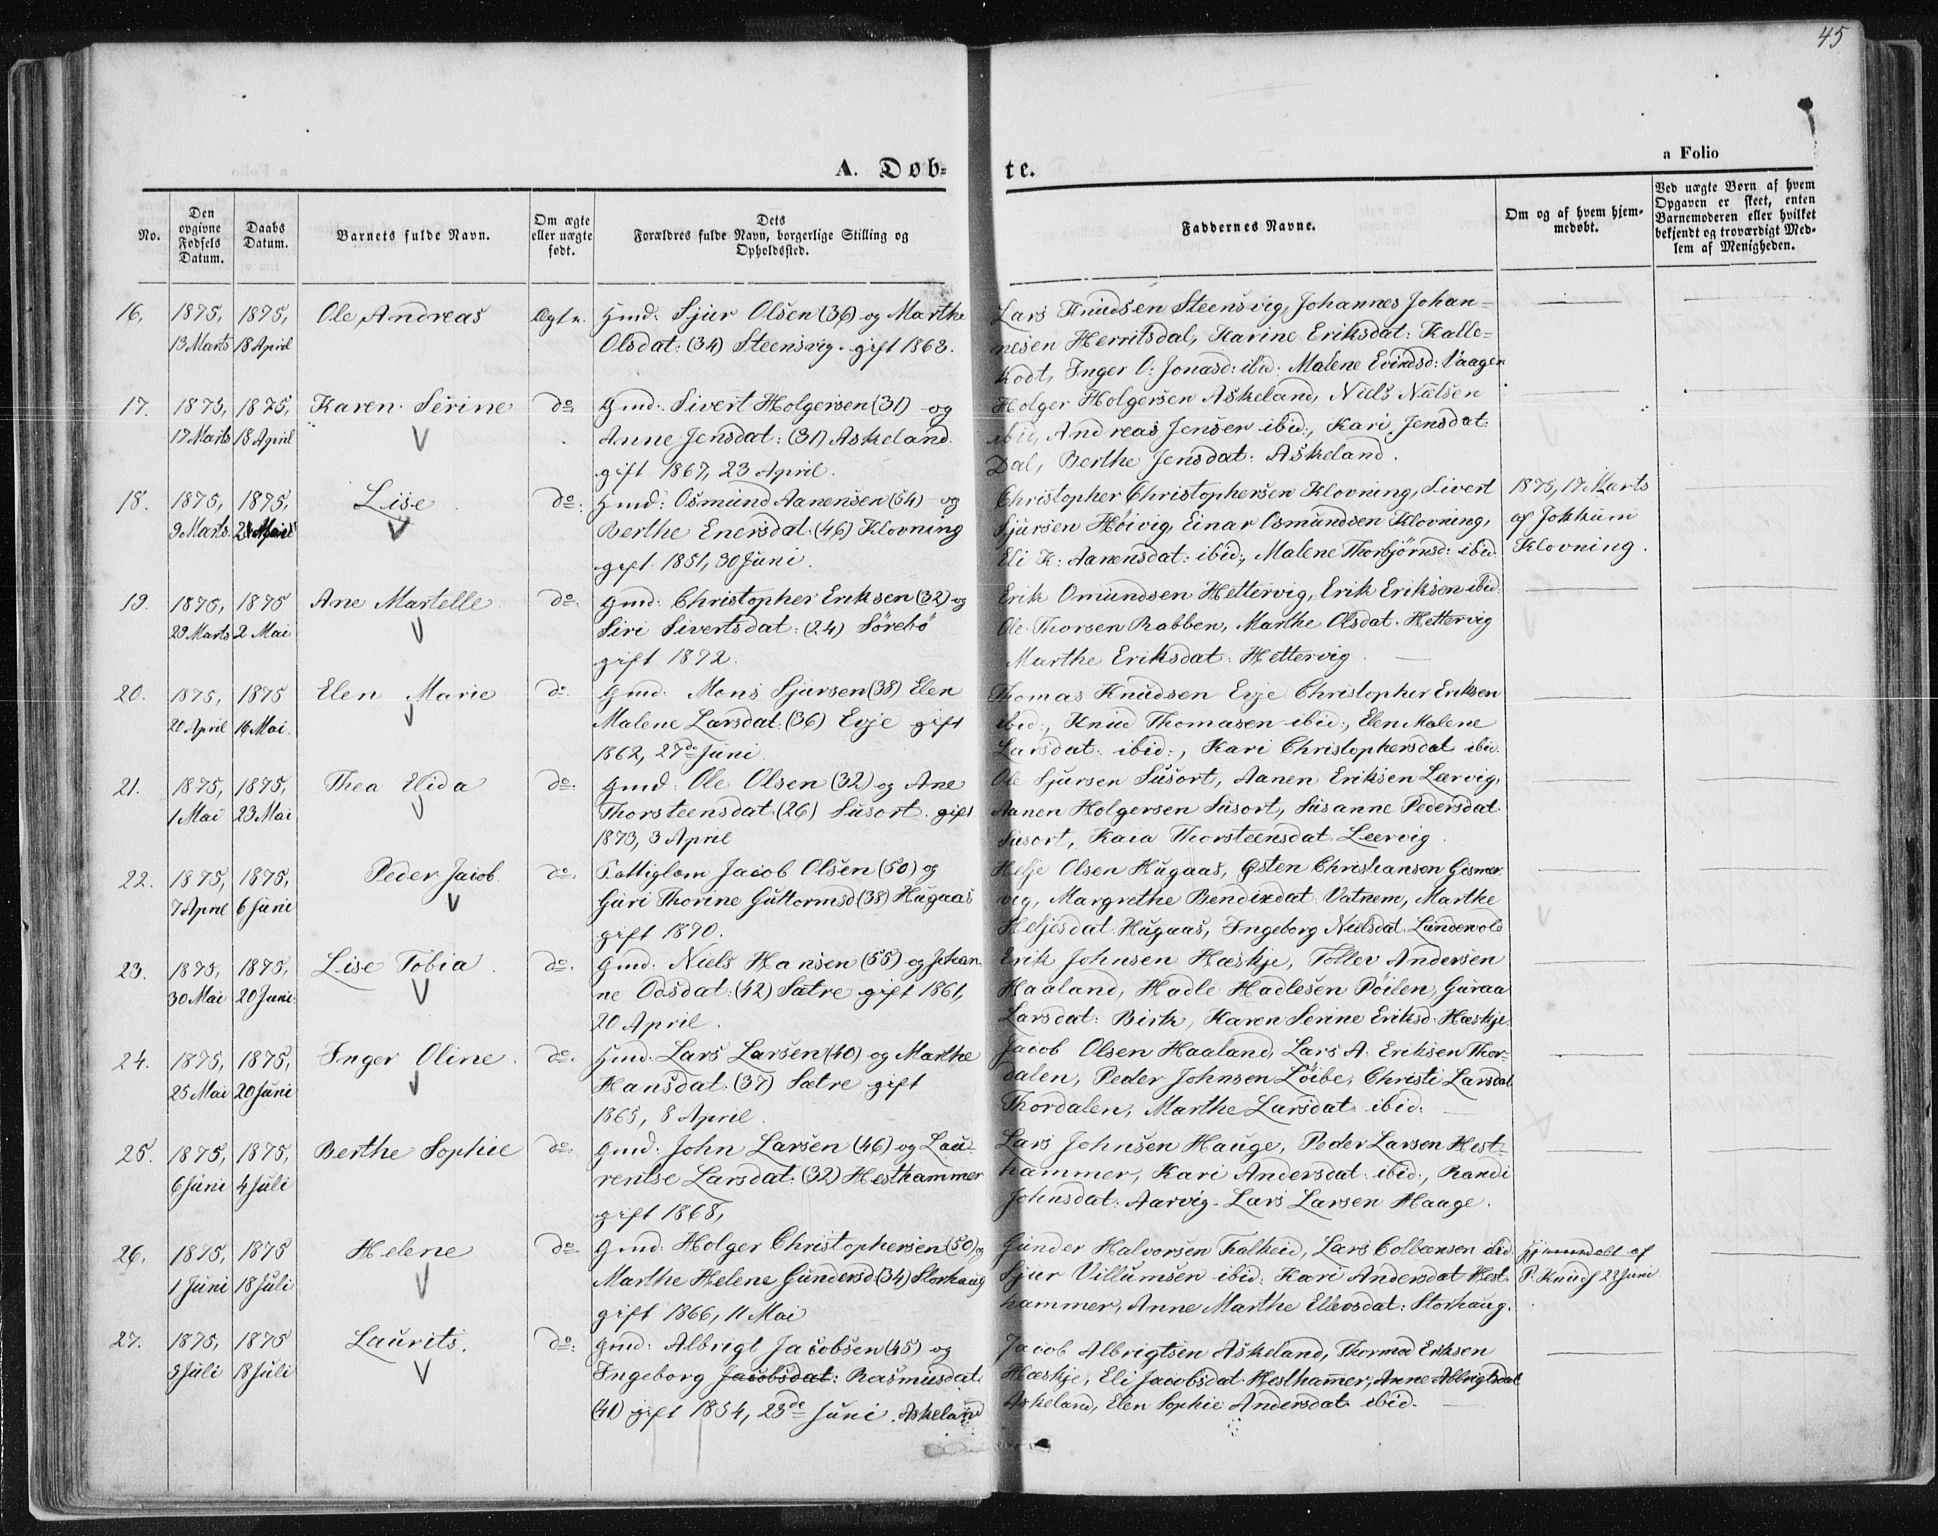 45
a Folio
A. Døb-
te.
No.
Den opgivne Fødsels Datum.
Daabs Datum.
Barnets fulde Navn.
Om ægte eller uægte født.
Dets Forældres fulde Navn, borgerlige Stilling og Opholdssted.
Faddernes Navne.
Om og af hvem hjemmedøbt.
Ved uægte Børn af hvem Opgaven er skeet, enten Barnemoderen eller hvilket bekjendt og troværdigt Medlem af Menigheden.
16. 1875, 1875, Ole Andreas Ægte. Gmd: Sjur Olsen (36) og Marthe
13 Marts 18 April Olsdat: (34) Steensvig. gift 1863.
Lars Knudsen Steensvig, Johannes Johan-
nesen Herritsdal, Karine Eriksdat: Kalle-
kodt, Inger O: Jonasd: ibid: Malene Evindsd: Vaagen
17. 1875, 1875, Karen Serine do Gmd: Sivert Holgersen (31) og
17 Marts 18 April Anne Jensdat: (31) Askeland
gift 1867, 23 April.
Holger Holgersen Askeland, Niels Nielsen
ibid, Andreas Jensen ibid., Kari Jensdat:
Dal, Berthe Jensdat: Askeland.
18. 1875, 1875, Lise do: Gmd: Osmund Aanensen (54) og
9 Marts Berthe Enersdat: (46) Klovning
gift 1851, 30 Juni.
Christopher Christophersen Klovning, Sivert
Sjursen Høivig, Einar Osmundsen Klovning,
Eli K: Aanensdat: ibid:, Malene Thorbjørnsd: ibid.
1875, 17 Marts
af Jokkum
Klovning.
19. 1875, 1875 Ane Martelle do: Gmd: Christopher Eriksen (32) og
29 Marts 2 Mai Siri Sivertsdat: (24) Sørebø
gift 1872.
Erik Omundsen Hettervig, Erik Eriksen ibid:
Ole Thorsen Rabben, Marthe Olsdat. Hettervig
Marthe Eriksdat: Hettervig.
20. 1875, 1875 Elen Marie do. Gmd: Mons Sjursen (38) Elen
20 April 16 Mai. Malene Larsdat: (36) Evje gift
1862, 27de Juni
Thomas Knudsen Evje Christopher Eriksen
ibid:, Knud Thomasen ibid:, Elen Malene
Larsdat: ibid:, Kari Christophersdat ibid.
21. 1875, 1875, Thea Elida do: Gmd: Ole Olsen (32) og Ane
1 Mai 23 Mai Thorsteensdat: (26) Susort. gift
1873, 3 April
Ole Sjursen Susort, Aanen Eriksen Leervig,
Aanen Holgersen Susort, Susanne Pedersdat.
Susort, Kaia Thorsteensdat. Leervig.
22. 1875, 1875. Peder Jacob do. Fattiglem Jacob Olsen (50) og
7 April 6 Juni Guri Thorine Guttormsd (38) Hugaas
gift 1870.
Helje Olsen Hugaas, Østen Christiansen Gismer-
vig, Margrethe Bendixdat. Vatnem, Marthe
Heljesdat. Hugaas, Ingeborg Nielsdat. Lundevold
23. 1875, 1875, Lise Tobia do. Gmd: Niels Hansen (55) og Johan
30 Mai 20 Juni ne Odsdat: (42) Sætre gift 1861,
20 April.
Erik Johnsen Hæskje, Tollev Andersen
Haaland, Hadle Hadlesen Pøilen, Guraa
Larsdat: Birk, Karen Serine Eriksd. Hæskje.
24. 1875, 1875, Inger Oline. do. Gmd: Lars Larsen (40) og Marthe
25 Mai 20 Juni Hansdat. (37) Sætre gift
1865, 8 April.
Jacob Olsen Haaland, Lars A. Eriksen Thor-
dalen, Peder Johnsen Løibe, Christi Larsdat
Thordalen, Marthe Larsdat ibid:
25. 1875, 1875, Berthe Sophie do. Gmd: John Larsen (46) og Lau-
6 Juni 4 Juli rentse Larsdat: (32) Hesthammer
gift 1868,
Lars Johnsen Hauge, Peder Larsen Hest-
hammer, Kari Andersdat ibid:, Randi
Johnsdat: Aarvig. Lars Larsen Haage.
26. 1875, 1875 Helene do. Gmd: Holger Christophersen (50) og
1 Juni 18 Juli Marthe Helene Gundersd (34) Storhaug
gift 1866, 11 Mai
Gunder Halvorsen Falkeid, Lars Colbænsen ibid.
Sjur Villumsen ibid: Kari Andersdat Hest-
hammer, Anne Marthe Ellevsdat: Storhaug.
Hjemmedøbt af
P. Knuds 22 Juni
27. 1875, 1875 Laurits. do: Gmd: Albrigt Jacobsen (45) og
3 Juli 18 Juli Ingeborg Jacobsdat: Rasmusdat.
(41) gift 1854, 23de Juni. Askeland
Jacob Albrigtsen Askeland, Thormod Eriksen
Hæskje, Eli Jacobsdat Hesthammer, Anne Albrigtsdat
Askeland, Elen Sophie Andersdat. ibid.